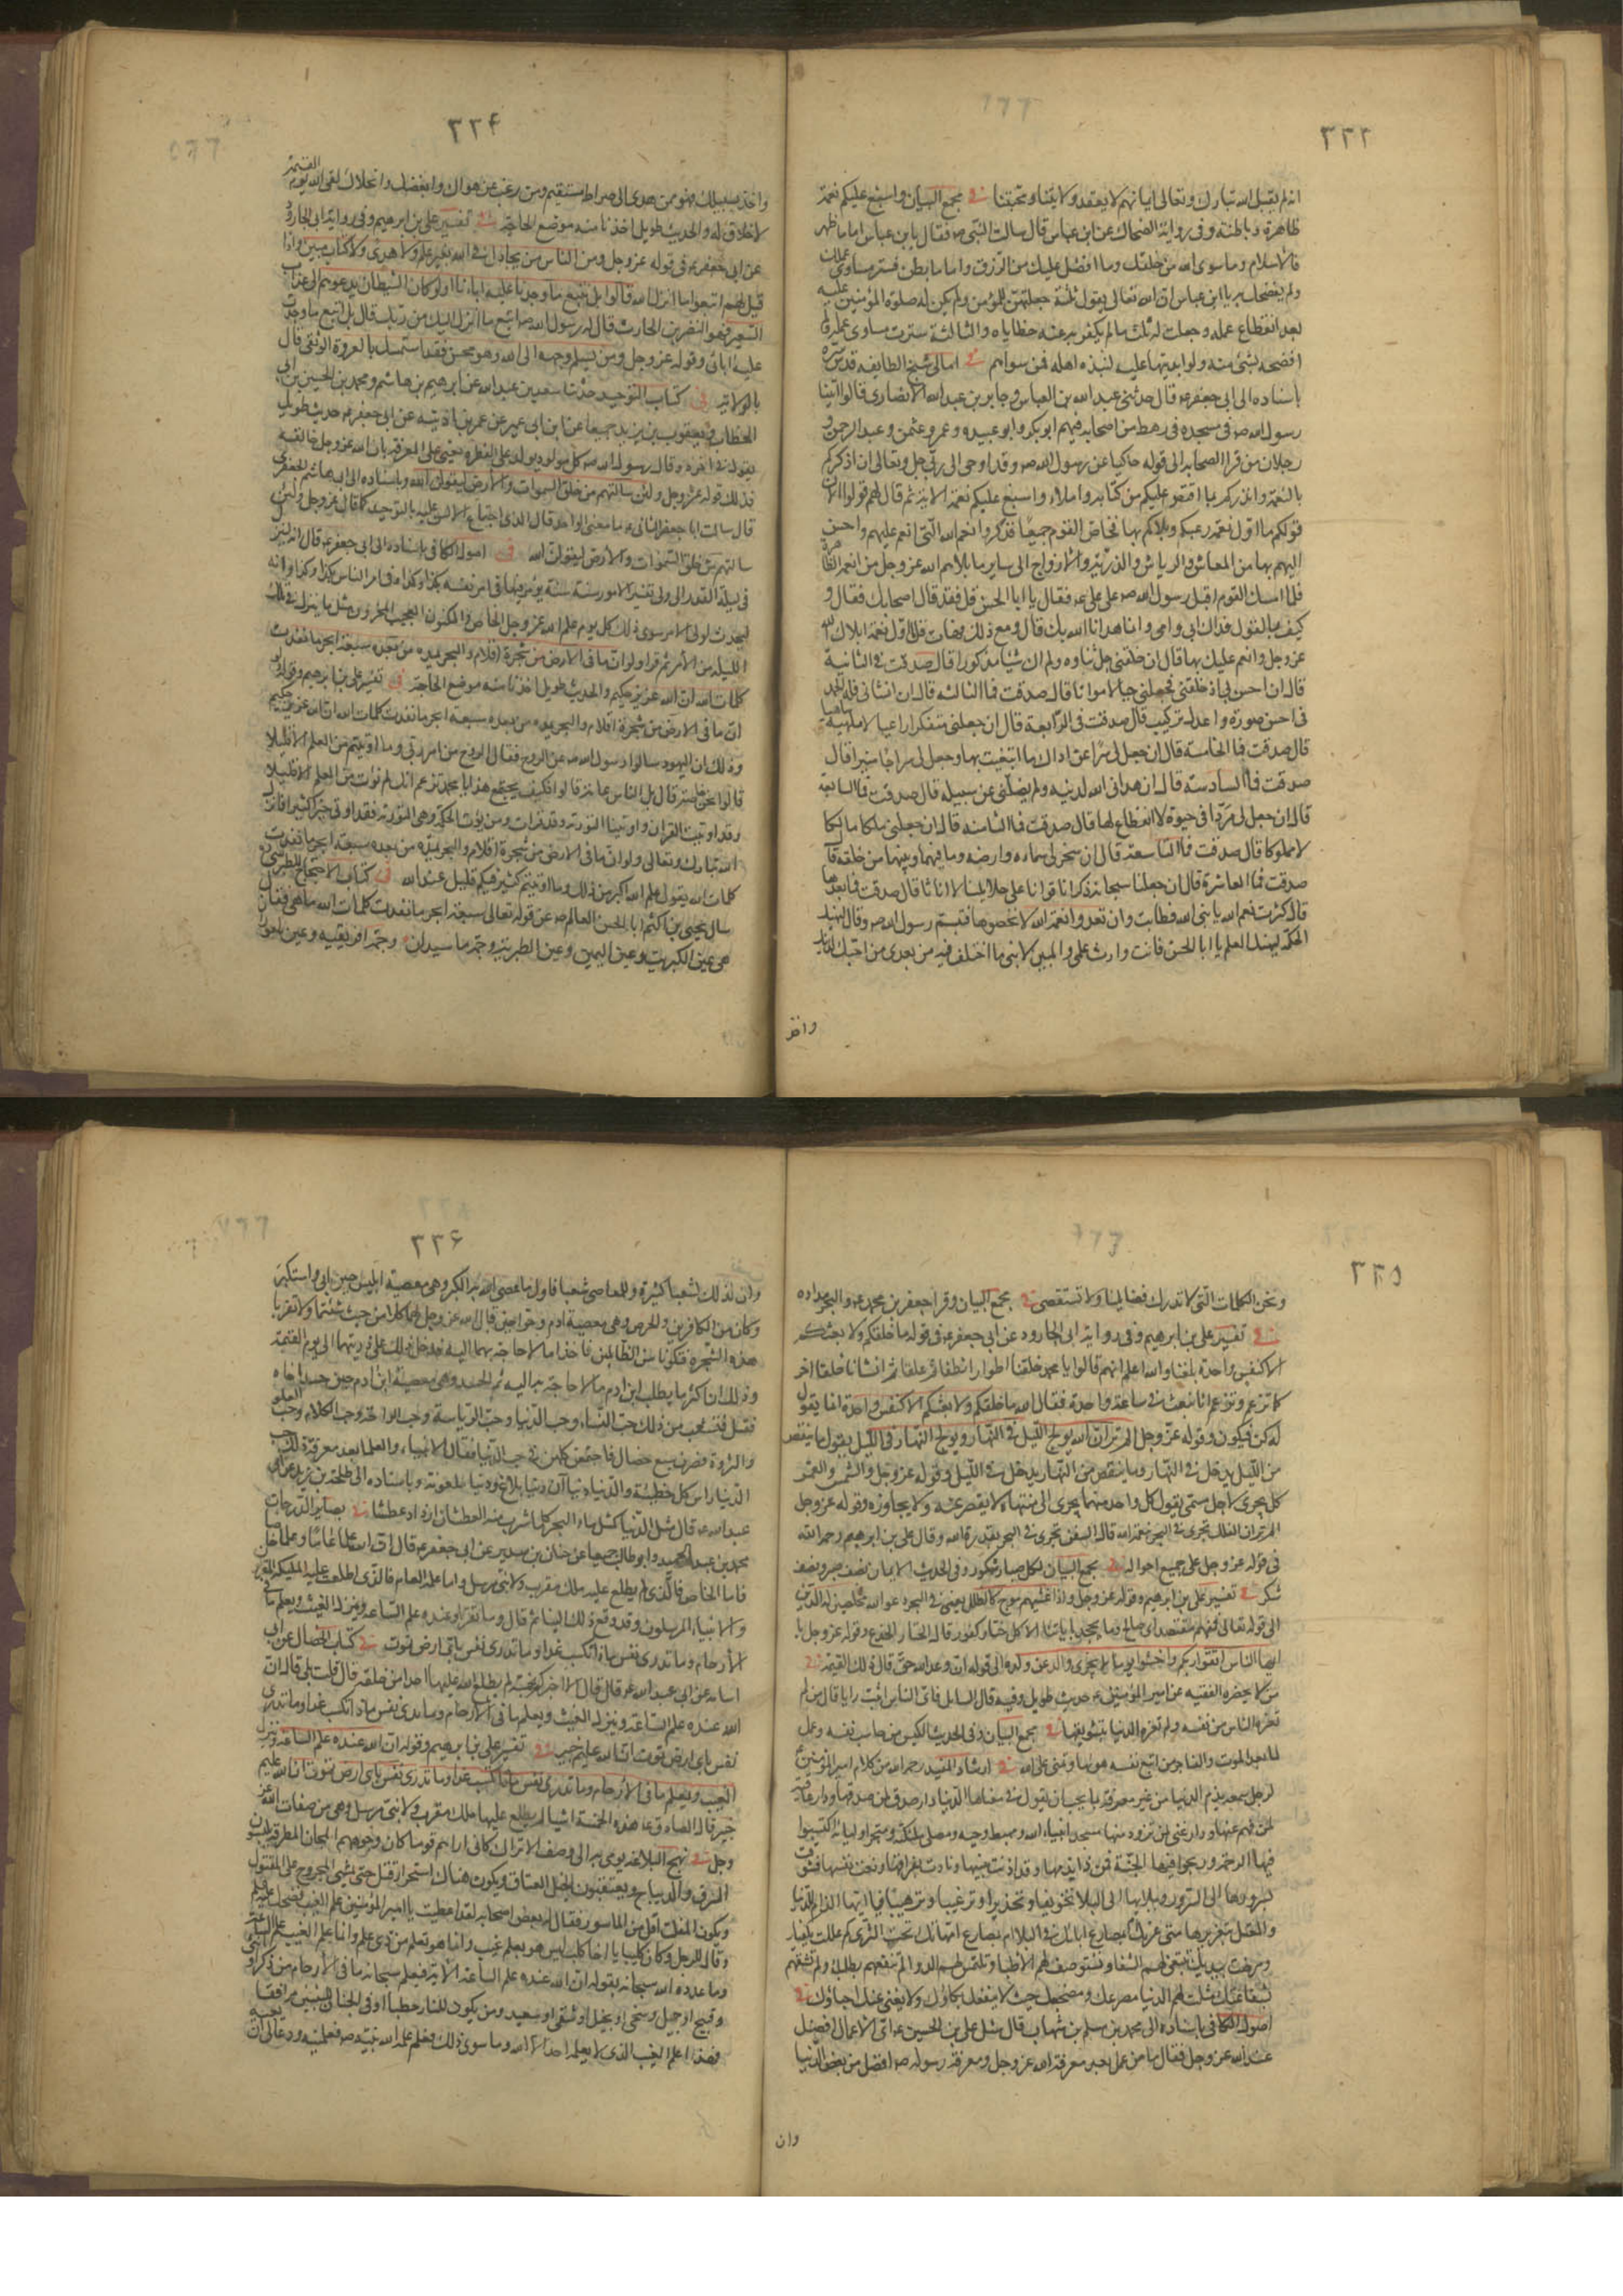 ٣٣٣
انه لم يقبل الله تبارك وتعالى ايمانهم لا بعقد ولايتنا ومحبتنا في مجمع البيان واسبغ عليكم نعمه
ظاهرة وباطنة وفى رواية الضحاك عن ابن عباس قال سالت النبى صه فقال يا بن عباس اما ما ظهر
فالاسلام وما سوى الله من خلقك وما افضل عليك من الرزق واما ما بطن فستر مساوى عملك
ولم يفضحك به يا ابن عباس ان الله تعالى يقول ثلثة جعلتهن للمؤمن ولم يكن له صلوة المؤمنين عليه
بعد انقطاع عمله وجعلت له ثلث ماله يكفر به عنه خطاياه والثالثة سترت مساوى عمله ولم
افضحه بشئ منه ولو ابديتها عليه لنبذه اهله فمن سواهم في امالى شيخ الطايفه قدس سره
باسناده الى ابى جعفر عه قال حدثنى عبد الله بن العباس وجابر بن عبد الله الانصارى قالوا اتينا
رسول الله صه فى مسجده فى رهط من اصحابه فيهم ابو بكر وابو عبيده وعمر وعثمن وعبد الرحمن و
رجلان من قراء الصحابه الى قوله حاكيا عن رسول الله صه وقد اوحى الى ربى جل وتعالى ان اذكركم
بالنعمة وانذركم بما اقتص عليكم من كتابه واملاء واسبغ عليكم نعمه الاية ثم قال لهم قولوا الان
قولكم ما اول نعمه رغبكم وبلاكم بها فخاض القوم جميعا فذكروا نعم الله التى انعم عليهم واحسن
اليهم بها من المعاش والرياش والذرية والازواج الى ساير ما بلاهم الله عز وجل من انعمه الظاهرة
فلما امسك القوم اقبل رسول الله صه على على عه فقال يا ابا الحسن قل فقد قال اصحابك فقال و
كيف بالقول فداك ابى وامى وانما هدانا الله بك قال ومع ذلك فهات قل ما اول نعمة ابلاك الله
عز وجل وانعم عليك بها قال ان خلقنى جل ثناؤه ولم اك شيئا مذكورا قال صدقت فما الثانية
قال ان احسن بى اذ خلقنى فجعلنى حيا لا مواتا قال صدقت فما الثالثه قال ان انشانى فله الحمد
فى احسن صورة واعدل تركيب قال صدقت فما الرابعة قال ان جعلنى متفكرا راعيا لا بلهة ساهيا
قال صدقت فما الخامسة قال ان جعل لى شواعر ادرك ما ابتغيت بها وجعل لى سراجا منيرا قال
صدقت فما السادسة قال ان هدانى الله لدينه ولم يضلنى عن سبيله قال صدقت فما السابعة
قال ان جعل لى مردا فى حيوة لا انقطاع لها قال صدقت فما الثامنه قال ان جعلنى ملكا مالكا
لا مملوكا قال صدقت فما التاسعة قال ان سخر لى سماءه وارضه وما فيهما وبينهما من خلقه قال
صدقت فما العاشرة قال ان جعلنا سبحانه ذكرانا قواما على حلائلنا لا اناثا قال صدقت فما بعد هذا
قال كثرت نعم الله يا نبى الله فطابت وان تعدوا نعمة الله لا تحصوها فتبسم رسول الله صه وقال ليهنك
الحكمة ليهنك العلم يا ابا الحسن فانت وارث علمى والمبين لامتى ما اختلف فيه من بعدى من احبك لدينك
واخذ
٣٣۴
واخذ بسبيلك فهو ممن هدى الى صراط مستقيم ومن رغب عن هواك وابغضك وانحلاك لقى الله يوم القيمة
لا خلاق له والحديث طويل اخذنا منه موضع الحاجة في تفسير على بن ابرهيم وفى رواية ابى الجارود
عن ابى جعفر عه فى قوله عز وجل ومن الناس من يجادل فى الله بغير علم ولا هدى ولا كتاب مبين واذا
قيل لهم اتبعوا ما انزل الله قالوا بل نتبع ما وجدنا عليه اباءنا اولو كان الشيطان يدعوهم الى عذاب
السعير فهو النضر بن الحارث قال له رسول الله صه اتبع ما انزل اليك من ربك قال بل اتبع ما وجدت
عليه ابائى وقوله عز وجل ومن يسلم وجهه الى الله وهو محسن فقد استمسك بالعروة الوثقى قال
بالولاية في كتاب التوحيد حدثنا سعد بن عبد الله عن ابرهيم بن هاشم ومحمد بن الحسين بن ابى
الخطاب ويعقوب بن يزيد جميعا عن ابن ابى عمير عن عمر بن اذينه عن ابى جعفر عه حديث طويل
يقول فى اخره وقال رسول الله صه كل مولود يولد على الفطره يعنى على المعرفه بان الله عز وجل خالقه
فذلك قوله عز وجل ولئن سالتهم من خلق السموات والارض ليقولن الله وباسناده الى ابى هاشم الجعفرى
قال سالت ابا جعفر الثانى عه ما معنى الواحد قال الذى اجتماع الالسن عليه بالتوحيد كما قال عز وجل ولئن
سالتهم من خلق السموات والارض ليقولن الله في اصول الكافى باسناده الى ابى جعفر عه قال انه لينزل
فى ليلة القدر الى ولى تفسير الامور سنة سنة يؤمر فيها فى امر نفسه بكذا وكذا وفى امر الناس بكذا وكذا وانه
ليحدث لولى الامر سوى ذلك كل يوم علم الله عز وجل الخاص والمكنون العجيب المخزون مثل ما ينزل فى تلك
الليله من الامر ثم قرا ولو ان ما فى الارض من شجرة اقلام والبحر يمده من بعده سبعة ابحر ما نفدت
كلمات الله ان الله عزيز حكيم والحديث طويل اخذنا منه موضع الحاجة في تفسير على بن ابرهيم وقوله ولو
ان ما فى الارض من شجرة اقلام والبحر يمده من بعده سبعة ابحر ما نفدت كلمات الله ان الله عزيز حكيم
وذلك ان اليهود سالوا رسول الله صه عن الروح فقال الروح من امر ربى وما اوتيتم من العلم الا قليلا
قالوا نحن خاصة قال بل الناس عامة قالوا فكيف يجتمع هذا يا محمد تزعم انك لم تؤت من العلم الا قليلا
وقد اوتيت القران واوتينا التورية وقد قرات ومن يؤت الحكمة وهى التورية فقد اوتى خيرا كثيرا فانزل
الله تبارك وتعالى ولو ان ما فى الارض من شجرة اقلام والبحر يمده من بعده سبعة ابحر ما نفدت
كلمات الله يقول علم الله اكبر من ذلك وما اوتيتم كثير فيكم قليل عند الله في كتاب الاحتجاج للطبرسى
سال يحيى بن اكثم ابا الحسن العالم صه عن قوله تعالى سبعة ابحر ما نفدت كلمات الله ما هى فقال
هى عين الكبريت وعين اليمن وعين الطبرية وحمة ماسيدان وحمة افريقيه وعين باحوران
٣٣٥
ونحن الكلمات التى لا تدرك فضايلنا ولا تستقصى في مجمع البيان وقرا جعفر بن محمد عه والبحر مداده
في تفسير على بن ابرهيم وفى رواية ابى الجارود عن ابى جعفر عه فى قوله ما خلقكم ولا بعثكم
الا كنفس واحدة بلغنا والله اعلم انهم قالوا يا محمد خلقنا اطوارا نطفا ثم علقا ثم انشانا خلقا اخر
كما تزعم وتزعم انا نبعث فى ساعة واحدة فقال الله ما خلقكم ولا بعثكم الا كنفس واحدة انما يقول
له كن فيكون وقوله عز وجل الم تر ان الله يولج الليل فى النهار ويولج النهار فى الليل يقول ما ينقص
من الليل يدخل فى النهار وما ينقص من النهار يدخل فى الليل وقوله عز وجل والشمس والقمر
كل يجرى لاجل مسمى يقول كل واحد منهما يجرى الى منتهاه لا يقصر عنه ولا يجاوزه وقوله عز وجل
الم تر ان الفلك تجرى فى البحر بنعمة الله قال السفن تجرى فى البحر بقدرة الله وقال على بن ابرهيم رحمه الله
فى قوله عز وجل على جميع احواله في مجمع البيان لكل صبار شكور وفى الحديث الايمان نصف صبر ونصف
شكر في تفسير على بن ابرهيم وقوله عز وجل واذا غشيهم موج كالظلل يعنى فى البحر دعوا الله مخلصين له الدين
الى قوله تعالى فمنهم مقتصد اى صالح وما يجحد باياتنا الا كل ختار كفور قال الختار الخداع وقوله عز وجل يا
ايها الناس اتقوا ربكم واخشوا يوما لا يجزى والد عن ولده الى قوله ان وعد الله حق قال ذلك القيمة في
من لا يحضره الفقيه عن امير المؤمنين عه حديث طويل وفيه قال السايل فاى الناس اثبت رايا قال من لم
تغره الناس من نفسه ولم تغره الدنيا بتشويقها في مجمع البيان وفى الحديث الكيس من حاسب نفسه وعمل
لما بعد الموت والفاجر من اتبع نفسه هويها وتمنى على الله في ارشاد المفيد رحمه الله من كلام امير المؤمنين عه
لرجل سمعه يذم الدنيا من غير معرفة بما يجب ان يقول فى معناها الدنيا دار صدق لمن صدقها ودار عافية
لمن فهم عنها ودار غنى لمن تزود منها مسجد انبياء الله ومهبط وحيه ومصلى ملئكته ومتجر اوليائه اكتسبوا
فيها الرحمة وربحوا فيها الجنة فمن ذا يذمها وقد اذنت ببينها ونادت بفراقها ونعت نفسها فشوقت
بسرورها الى السرور وببلائها الى البلاء تخويفا وتحذيرا وترغيبا وترهيبا فيا ايها الذام للدنيا
والمغتر بغرورها متى غرتك ابمصارع ابائك فى البلا ام بمضاجع امهاتك تحت الثرى كم عللت بكفيك
ومرضت بيديك تبتغى لهم الشفاء وتستوصف لهم الاطباء وتلتمس لهم الدواء لم تنفعهم بطلبك ولم تشفعهم
بشفاعتك مثلت لهم الدنيا مصرعك ومضجعك حيث لا ينفعك بكاؤك ولا يغنى عنك احباؤك في
اصول الكافى باسناده الى محمد بن مسلم بن شهاب قال سئل على بن الحسين عه اى الاعمال افضل
عند الله عز وجل فقال ما من عمل بعد معرفة الله عز وجل ومعرفة رسوله صه افضل من بغض الدنيا
وان
٣٣۶
وان لذلك لشعبا كثيرة وللمعاصى شعبا فاول ما عصى الله به الكبر وهى معصية ابليس حين ابى واستكبر
وكان من الكافرين والحرص وهى معصية ادم وحوا حين قال الله عز وجل لهما كلا من حيث شئتما ولا تقربا
هذه الشجرة فتكونا من الظالمين فاخذا ما لا حاجة بهما اليه فدخل ذلك على ذريتهما الى يوم القيمة
وذلك ان اكثر ما يطلب ابن ادم ما لا حاجة به اليه ثم الحسد وهى معصية ابن ادم حين حسد اخاه
فقتله فتشعب من ذلك حب النساء وحب الدنيا وحب الرياسة وحب الراحة وحب الكلام وحب العلو
والثروة فصرن سبع خصال فاجتمعن كلهن فى حب الدنيا فقال الانبياء والعلماء بعد معرفة ذلك حب
الدنيا راس كل خطيئة والدنيا دنيا ان دنيا بلاغ ودنيا ملعونة وباسناده الى طلحة بن زيد عن ابى
عبد الله عه قال مثل الدنيا كمثل ماء البحر كلما شرب منه العطشان ازداد عطشا في بصاير الدرجات
محمد بن عبد الحميد وابو طالب جميعا عن حنان بن سدير عن ابى جعفر عه قال ان لله علما عاما وعلما خاصا
فاما الخاص فالذى لم يطلع عليه ملك مقرب ولا نبى مرسل واما علمه العام فالذى اطلعت عليه المليكة المقربون
والانبياء المرسلون وقد وقع ذلك الينا ثم قال وما تقرا وعنده علم الساعة وينزل الغيث ويعلم ما فى
الارحام وما تدرى نفس ماذا تكسب غدا وما تدرى نفس باى ارض تموت في كتاب الخصال عن ابى
اسامه عن ابى عبد الله عه قال قال الا اخبركم بخمسة لم يطلع الله عليها احدا من خلقه قال قلت بلى قال ان
الله عنده علم الساعة وينزل الغيث ويعلم ما فى الارحام وما تدرى نفس ماذا تكسب غدا وما تدرى
نفس باى ارض تموت ان الله عليم خبير في تفسير على بن ابرهيم وقوله ان الله عنده علم الساعة وينزل
الغيث ويعلم ما فى الارحام وما تدرى نفس ماذا تكسب غدا وما تدرى نفس باى ارض تموت ان الله عليم
خبير قال الصادق عه هذه الخمسة اشياء لم يطلع عليها ملك مقرب ولا نبى مرسل وهى من صفات الله عز
وجل في نهج البلاغه يومى به الى وصف الاتراك كانى اراهم قوما كان وجوههم المجان المطرقة يلبسون
السرق والديباج ويعتقبون الخيل العتاق ويكون هناك استحرار قتل حتى يمشى المجروح على المقتول
ويكون المفلت اقل من الماسور فقال له بعض اصحابه لقد اعطيت يا امير المؤمنين علم الغيب فضحك عليه السلم
وقال للرجل وكان كلبيا يا اخا كلب ليس هو بعلم غيب وانما هو تعلم من ذى علم وانما علم الغيب علم الساعة
وما عدده الله سبحانه بقوله ان الله عنده علم الساعة الاية فيعلم سبحانه ما فى الارحام من ذكر او انثى
وقبيح او جميل وسخى او بخيل وشقى او سعيد ومن يكون للنار حطبا او فى الجنان للنبيين مرافقا
فهذا علم الغيب الذى لا يعلمه احد الا الله وما سوى ذلك فعلم علمه الله نبيه صه فعلمنيه ودعا لى ان يعيه